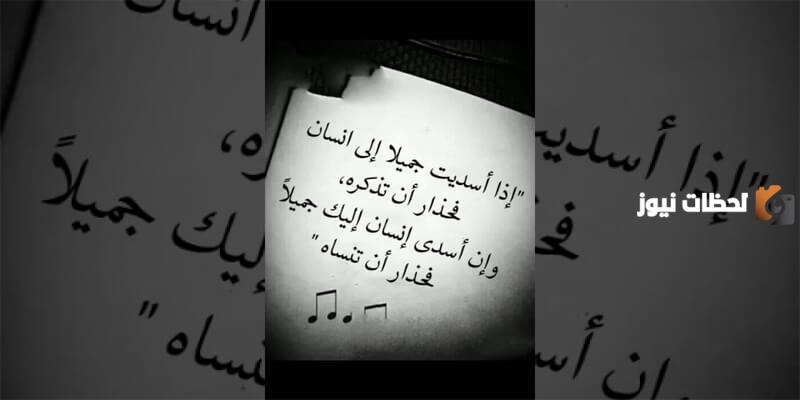 "إذا أسديت جميلا إلى انسان
فحذار أن تذكره،
وإن أسدى إنسان إليك جميلاً
فحذار أن تنساه"
لحظات نيوز